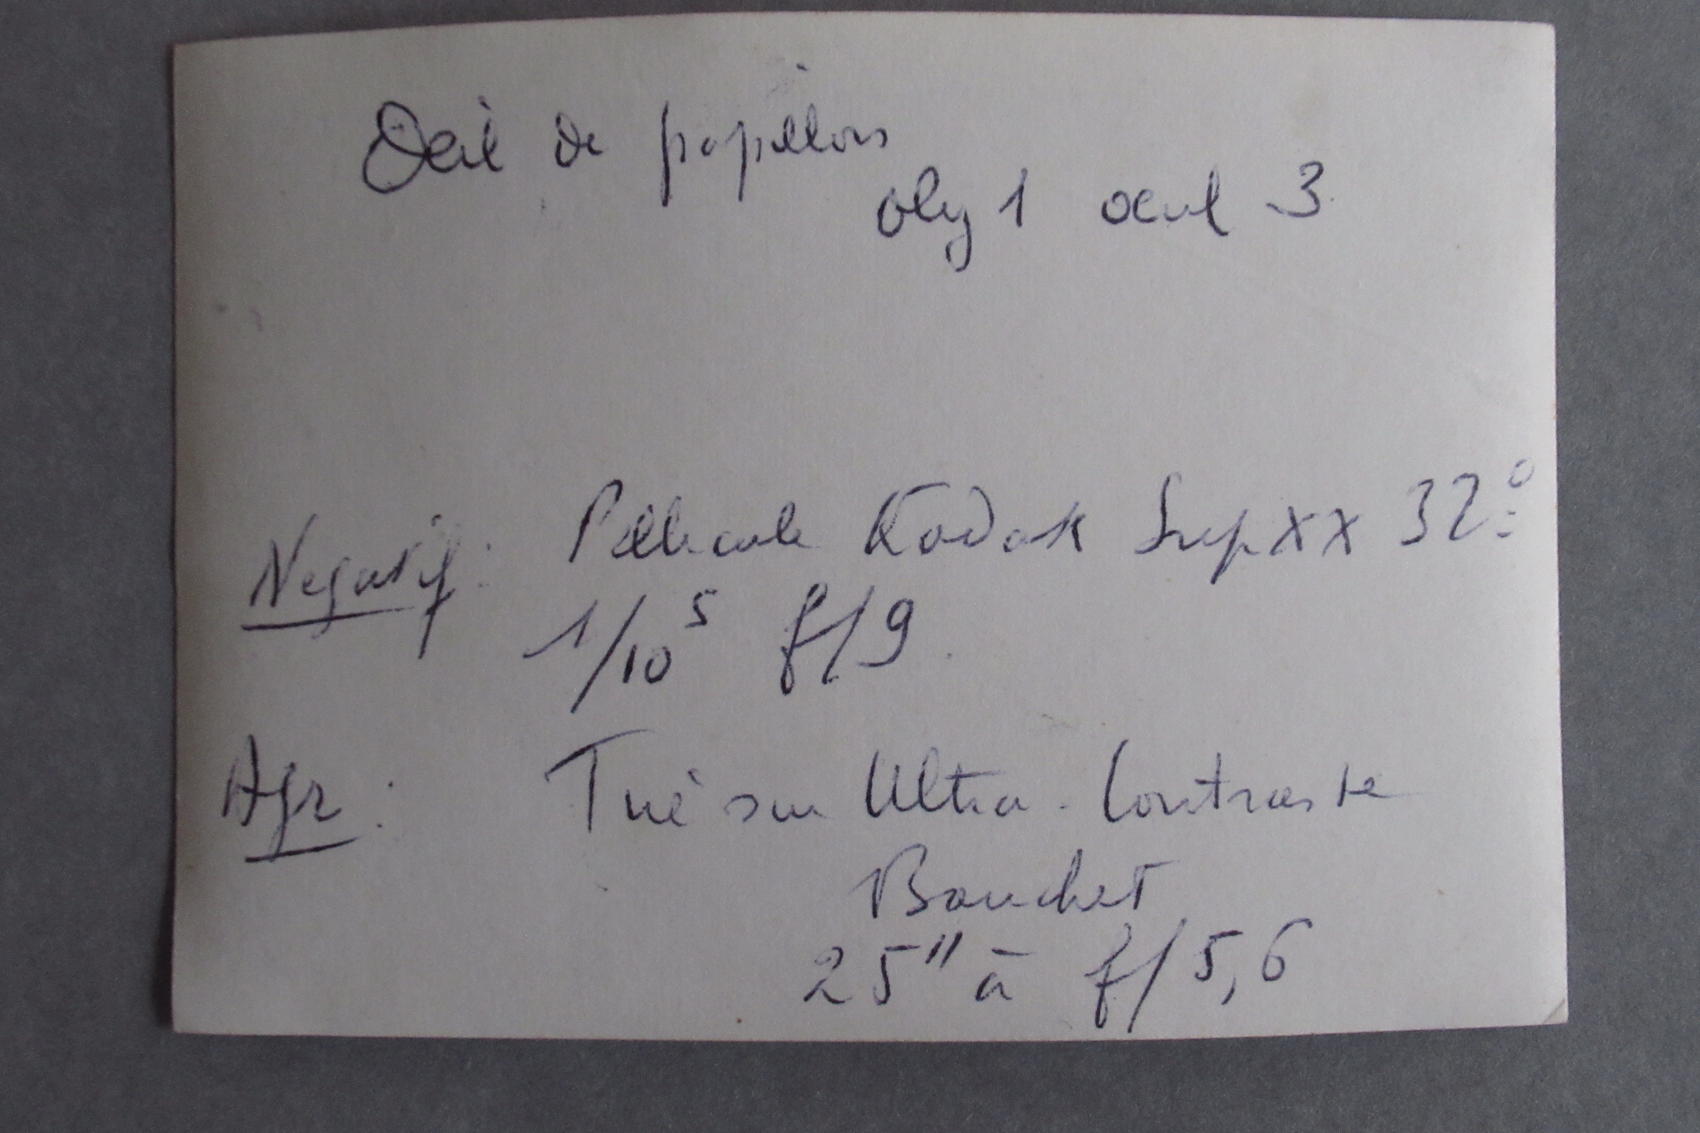 Oeil de papillon
obj 1 ocul 3
Negatif: Pellicule Kodak SupXX 32°
1/10 s f/9
Agr: Tiré sur Ultra-Contraste
Bauchet
25" à f/5,6